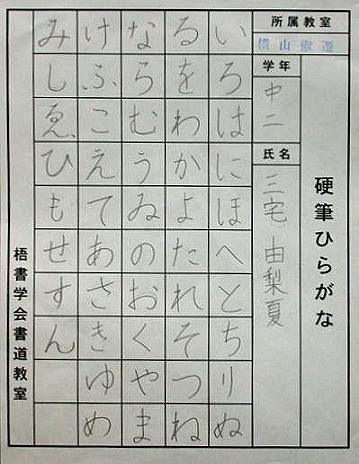 硬筆ひらがな
所属教室
横山
学年
中二
氏名
三宅 由梨夏
いろはにほへとちりぬ
るをわかよたれそつね
ならむうゐのおくやま
けふこえてあさきゆめ
みしゑひもせすん
梧書学会書道教室